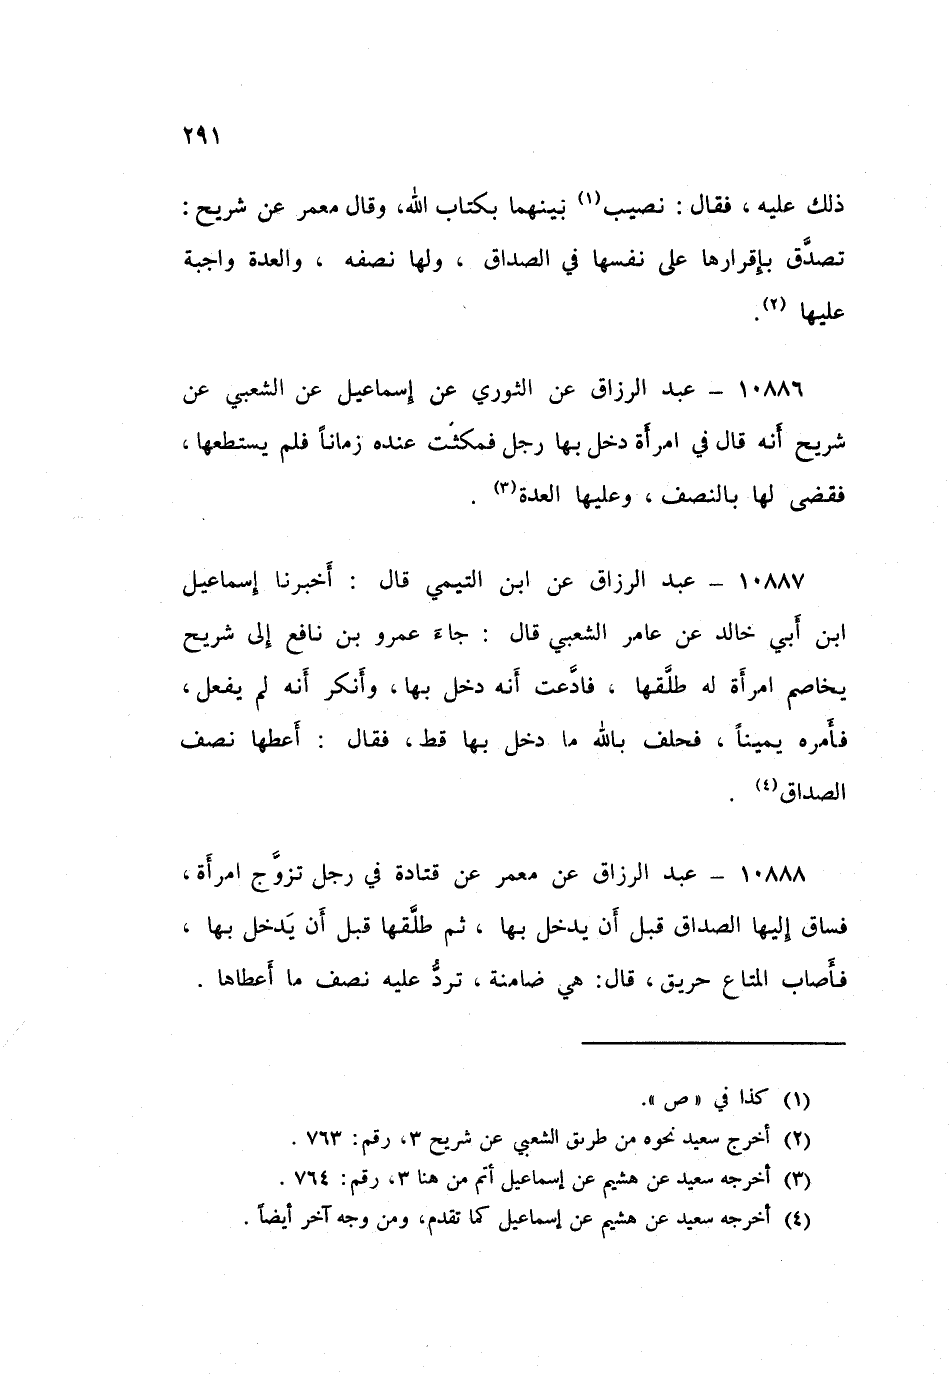 ٢٩١
ذلك عليه ، فقال : نصيب(١) بينهما بكتاب الله، وقال معمر عن شريح :
تصدَّق بإقرارها على نفسها في الصداق ، ولها نصفه ، والعدة واجبة
عليها (٢).
١٠٨٨٦ – عبد الرزاق عن الثوري عن إسماعيل عن الشعبي عن
شريح أنه قال في امرأة دخل بها رجل فمكثت عنده زماناً فلم يستطعها ،
فقضى لها بالنصف ، وعليها العدة(٣) .
١٠٨٨٧ – عبد الرزاق عن ابن التيمي قال : أخبرنا إسماعيل
ابن أبي خالد عن عامر الشعبي قال : جاءَ عمرو بن نافع إلى شريح
يخاصم امرأة له طلَّقها ، فادَّعت أنه دخل بها ، وأنكر أنه لم يفعل ،
فأمره يميناً ، فحلف بالله ما دخل بها قط ، فقال : أعطها نصف
الصداق(٤) .
١٠٨٨٨ – عبد الرزاق عن معمر عن قتادة في رجل تزوَّج امرأة ،
فساق إليها الصداق قبل أن يدخل بها ، ثم طلَّقها قبل أن يَدخل بها ،
فأصاب المتاع حريق ، قال: هي ضامنة ، تردُّ عليه نصف ما أعطاها .
(١) كذا في « ص ».
(٢) أخرج سعيد نحوه من طريق الشعبي عن شريح ٣، رقم: ٧٦٣ .
(٣) أخرجه سعيد عن هشيم عن إسماعيل أتم من هنا ٣، رقم: ٧٦٤ .
(٤) أخرجه سعيد عن هشيم عن إسماعيل كما تقدم، ومن وجه آخر أيضاً .